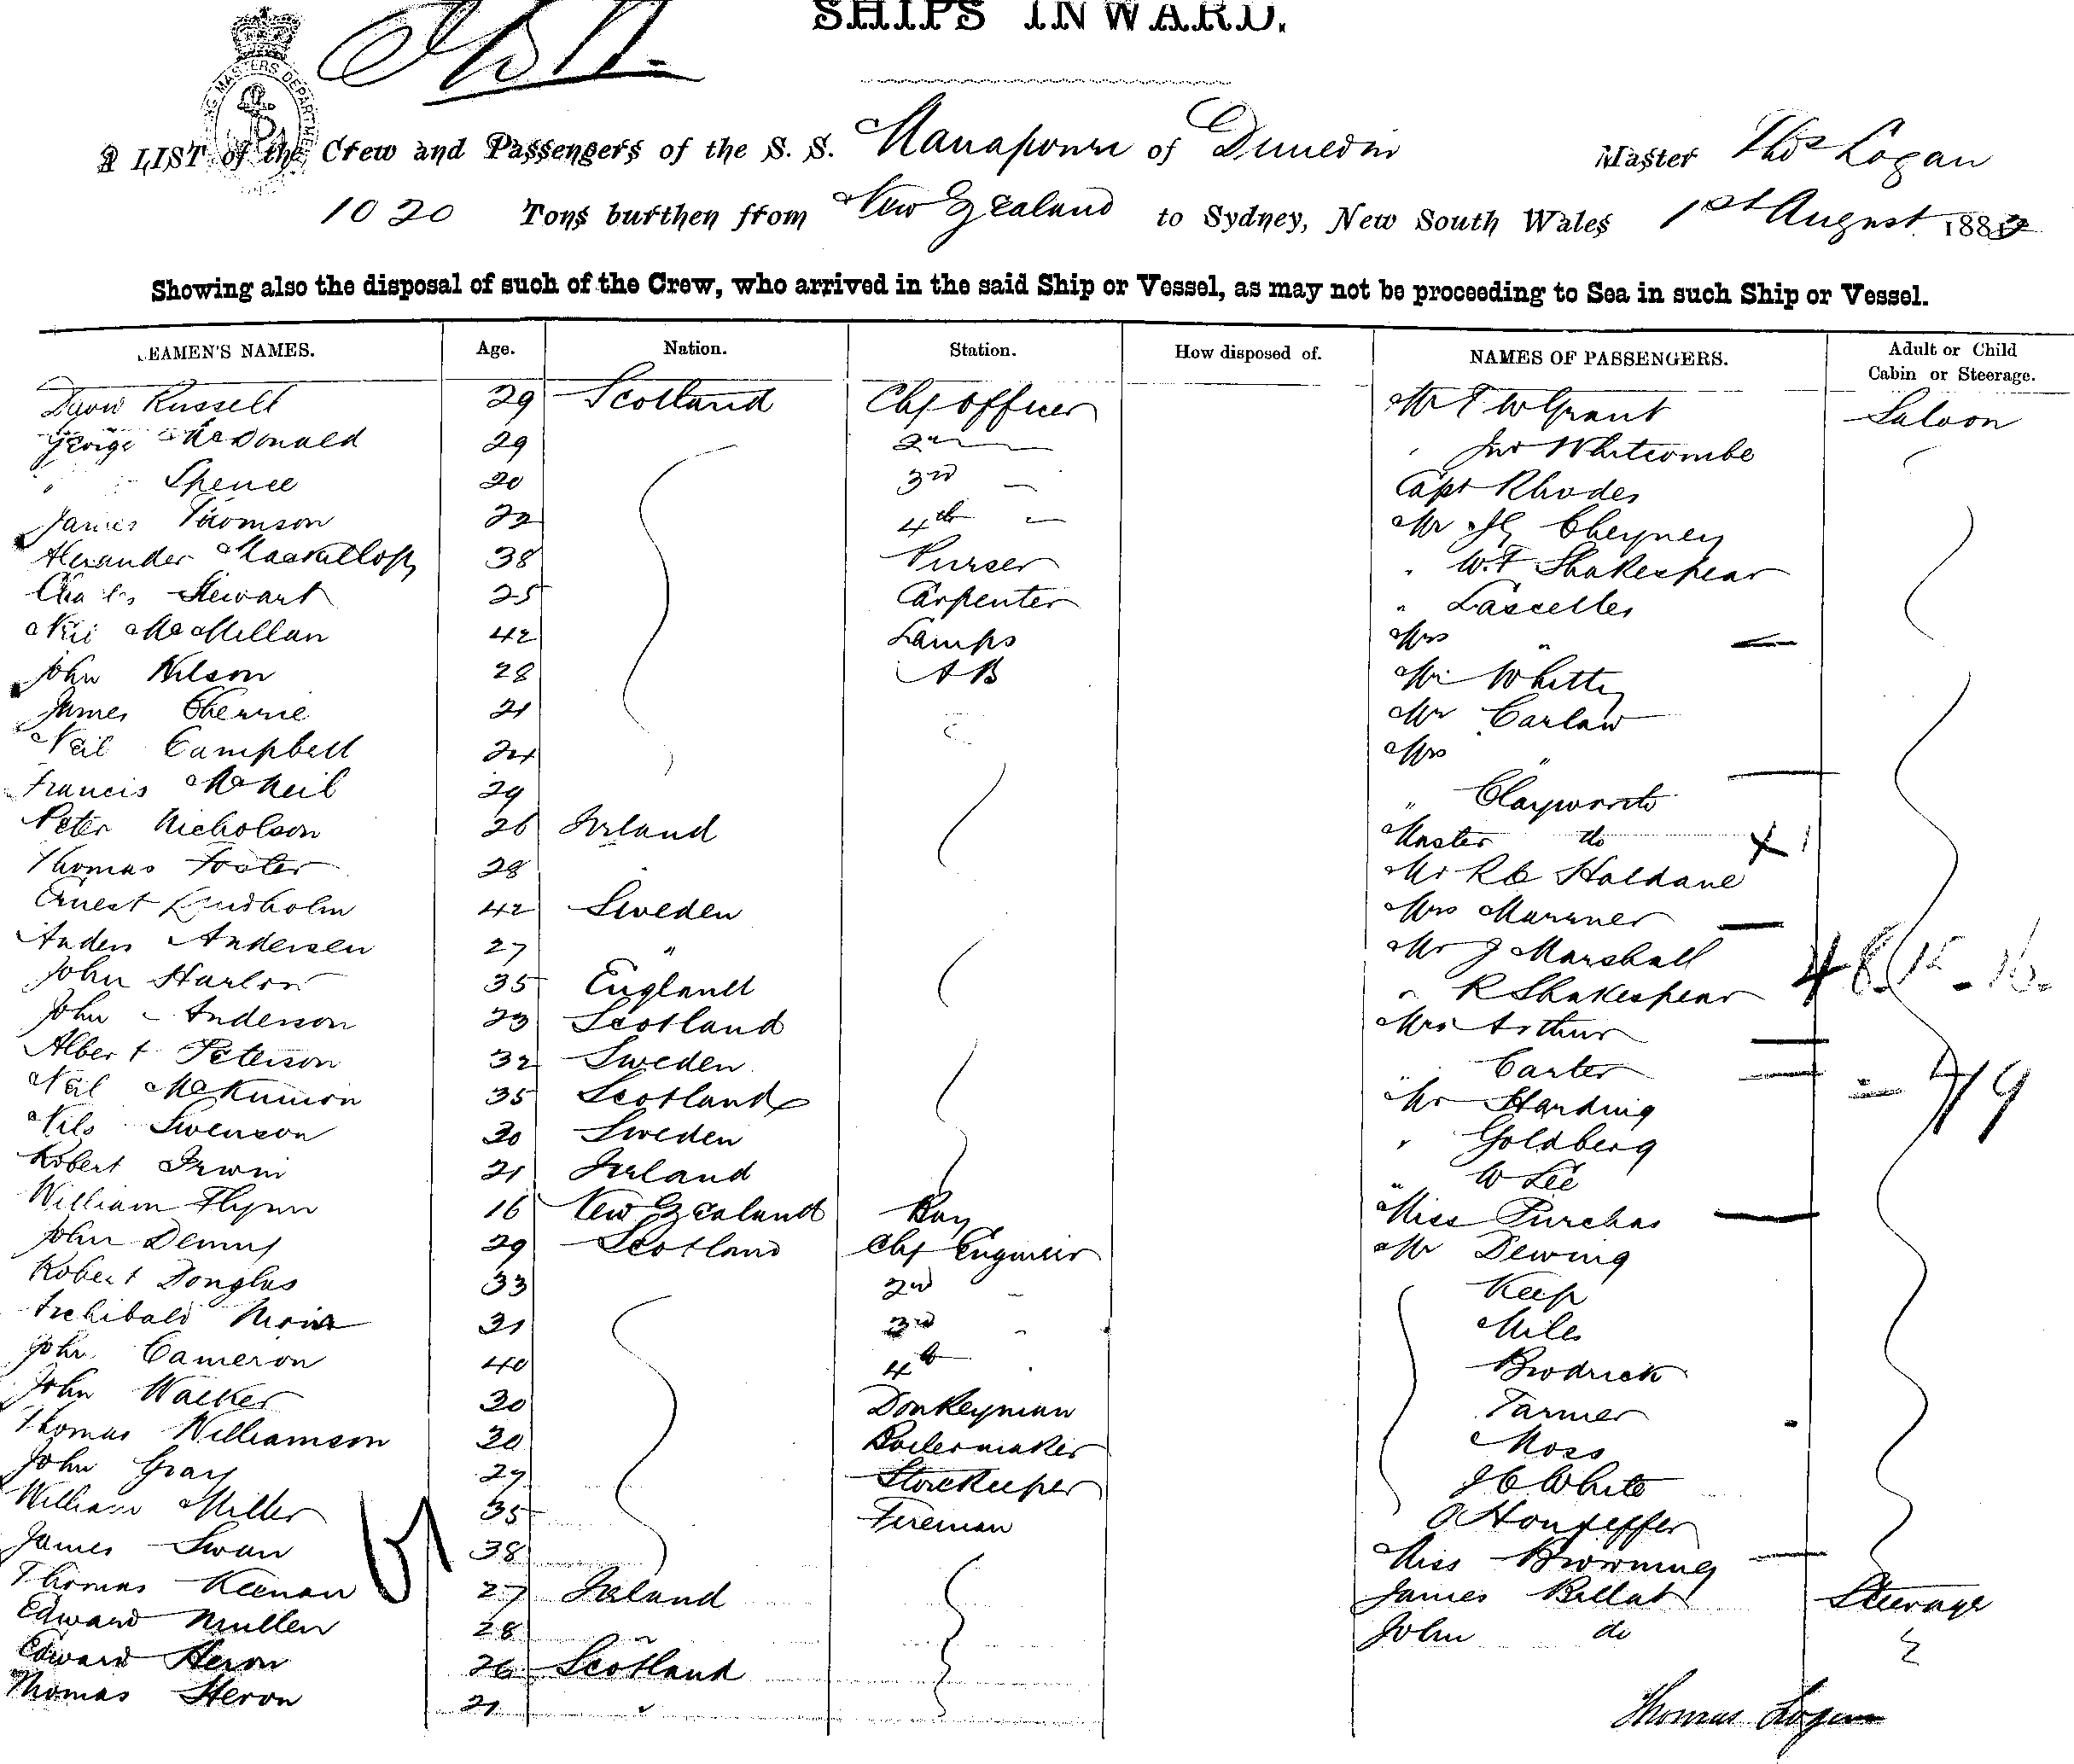 SHIPS INWARD.
A LIST of the Crew and Passengers of the S. S. Manapouri of Dunedin Master Thos Logan
1020 Tons burthen from New Zealand to Sydney, New South Wales 1st August 1882
Showing also the disposal of such of the Crew, who arrived in the said Ship or Vessel, as may not be proceeding to Sea in such Ship or Vessel.
EAMEN'S NAMES. Age. Nation. Station. How disposed of. NAMES OF PASSENGERS. Adult or Child Cabin or Steerage.
David Russell 29 Scotland Chf Officer Mr T W Grant Saloon
George McDonald 29 2nd Jno Whitcombe
" " Spence 20 3rd Capt Rhodes
James Thomson 22 4th Mr J G Cheyney
Alexander 38 Purser " W.F Shakespear
Charles Stewart 25 Carpenter " Lascelles
Neil McMillan 42 Lamps Mrs "
John Nilson 28 AB Mr Whitty
James Cherrie 21 Mr Carlaw
Neil Campbell 24 Mrs "
Francis McNeil 29 " Clayworth
Peter Nicholson 26 Ireland Master do X 1
Thomas Foster 28 Mr R C Haldane
Ernest Lindholm 42 Sweden Mrs Marner
Anders Andersen 27 " Mr J Marshall
John Harlow 35 England " R Shakespear
John Anderson 23 Scotland Mrs Arthur
Albert Peterson 32 Sweden " Carter
Neil McKinnon 35 Scotland Mr Harding
Nils Swenson 30 Sweden " Goldberg
Robert Irwin 21 Ireland " W Lee
William Flynn 16 New Zealand Boy Miss Purchas
John Denny 29 Scotland Chf Engineer Mr Dewing
Robert Douglas 33 2nd Keep
Archibald Moir 31 3rd Miles
John Cameron 40 4th Brodrick
John Walker 30 Donkeyman Farmer
Thomas Williamson 30 Boilermaker Moss
John Gray 27 Storekeeper J C White
William Miller 35 Fireman
James Swan 38 Miss Browning
Thomas Keenan 27 Ireland James Bellat Steerage
Edward Mullen 28 " John do
Edward Heron 26 Scotland
Thomas Heron 21 "
Thomas Logan